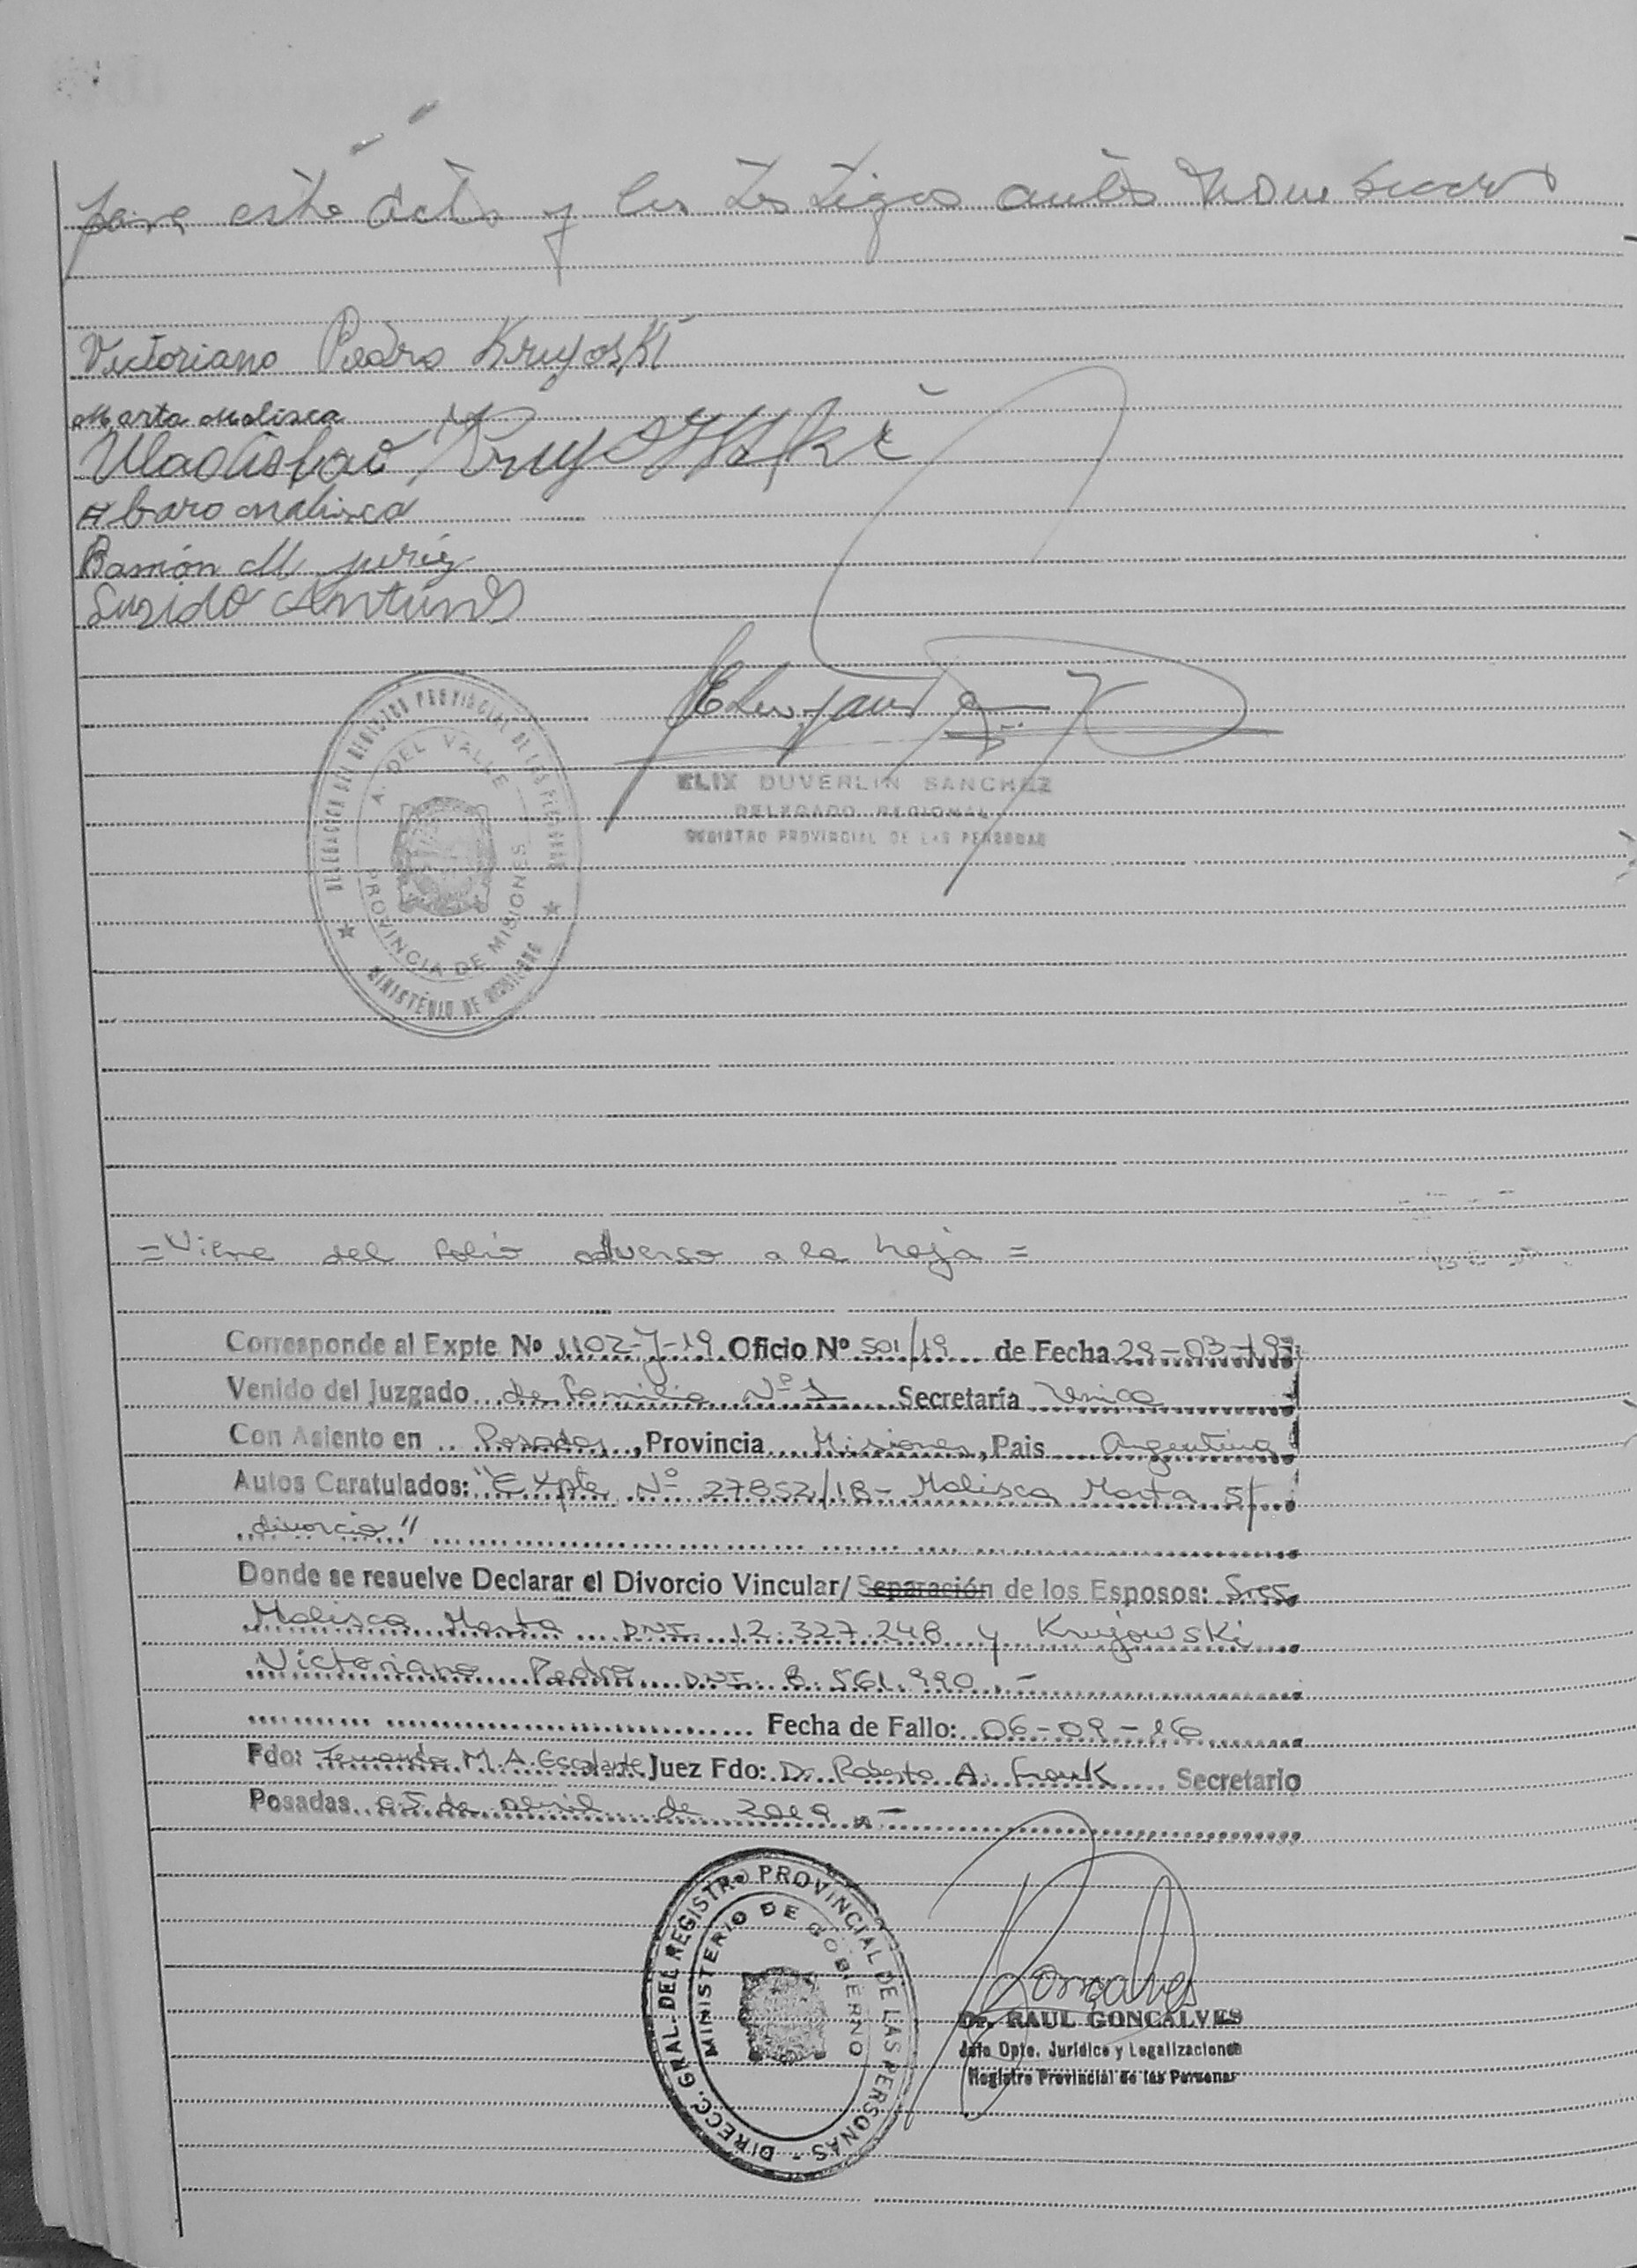 para este acto y los testigos antes nombrados
Victoriano Pedro Kruyoski
Marta Malisca
Uladislao Kruyowski
Albaro Malisca
Ramón M.
Antunes
DELEGACION DEL REGISTRO PROVINCIAL DE LAS PERSONAS
A. DEL VALLE
PROVINCIA DE MISIONES
MINISTERIO DE GOBIERNO
ELIX DUVERLIN SANCHEZ
DELEGADO REGIONAL
REGISTRO PROVINCIAL DE LAS PERSONAS
=Viene del folio adverso a la hoja=
Corresponde al Expte Nº 1102-J-19 Oficio Nº 501/19 de Fecha 29-03-19
Venido del Juzgado de Familia Nº 1 Secretaría Unica
Con Asiento en Posadas, Provincia Misiones, Pais Argentina
Autos Caratulados: "Expte Nº 27852/18- Malisca Marta S/
divorcio"
Donde se resuelve Declarar el Divorcio Vincular/Separación de los Esposos: Sres
Malisca Marta DNI 12.327.248 y Krujowski
Victoriano Pedro DNI 8.561.990.-
Fecha de Fallo: 06-09-16
Fdo: Fernanda M.A. Escalante Juez Fdo: Dr. Roberto A. Frank Secretario
Posadas 05 de abril de 2019.-
DIRECC. GRAL. DEL REGISTRO PROVINCIAL DE LAS PERSONAS -
MINISTERIO DE GOBIERNO
Gonçalves
Dr. RAUL GONCALVES
Jefe Dpto. Jurídico y Legalizaciones
Registro Provincial de las Personas